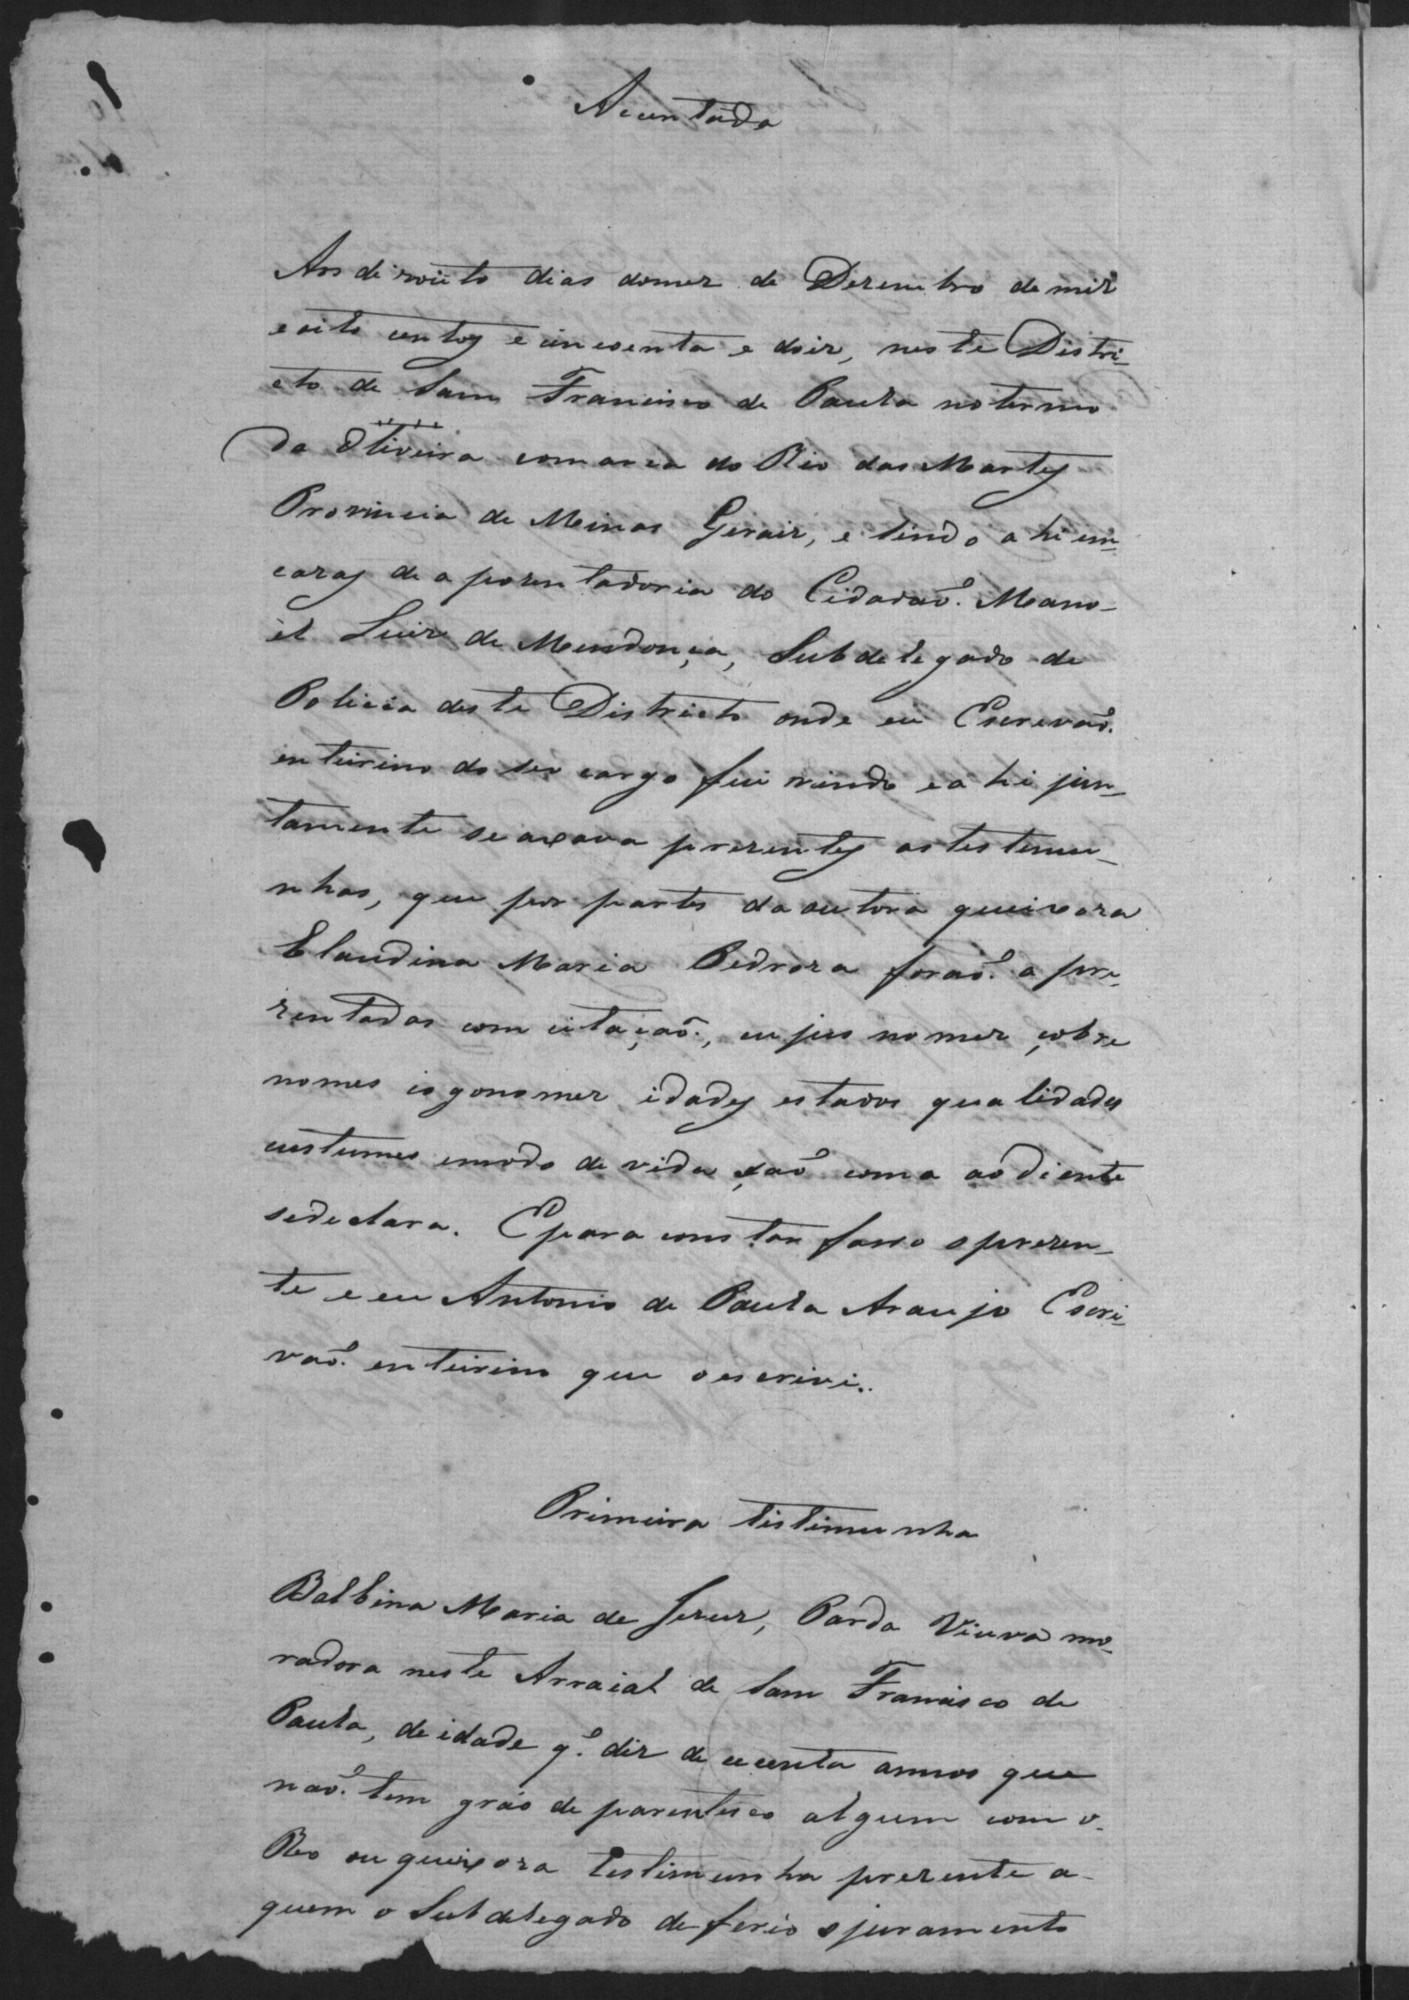 Acentada
Aos desouto dias domez de Dezembro de mil
e oito centos e cincoenta e doiz, neste Distri-
cto de Sam Francisco de Paula no termo
da Oliveira comarca do Rio das Mortes
Provincia de Minas Geraiz, e sendo ahi em
cazas de apozentadoria do Cidadaõ. Mano-
el Luiz de Mendonça, Subdelegado de
Policia deste Districto onde eu Escrevaõ.
enteirino do seo cargo fui vindo e ahi jun-
tamente se axava prezentes as testemu-
nhas, que por partes da autora queixoza
Claudina Maria Pedroza foraõ. a pre-
zentadas com citaçaõ., cujos nomez çobre
nomes cognomez idades estados qualidades
custumes emodo de vida çaõ como aodiente
sedeclara. E para constar fasso o prezen-
te e eu Antonio de Paula Araujo Escri-
vaõ. enteirino que o escrivi.
Primeira testimunha
Balbina Maria de Jezuz, Parda Viuva mo-
radora neste Arraial de Sam Francisco de
Paula, de idade q.e diz de cecenta annos que
naõ. tem gráo de parentesco algum com o
Reo ou queixoza testimunha prezente a
quem o Subdelegado deferio o juramento